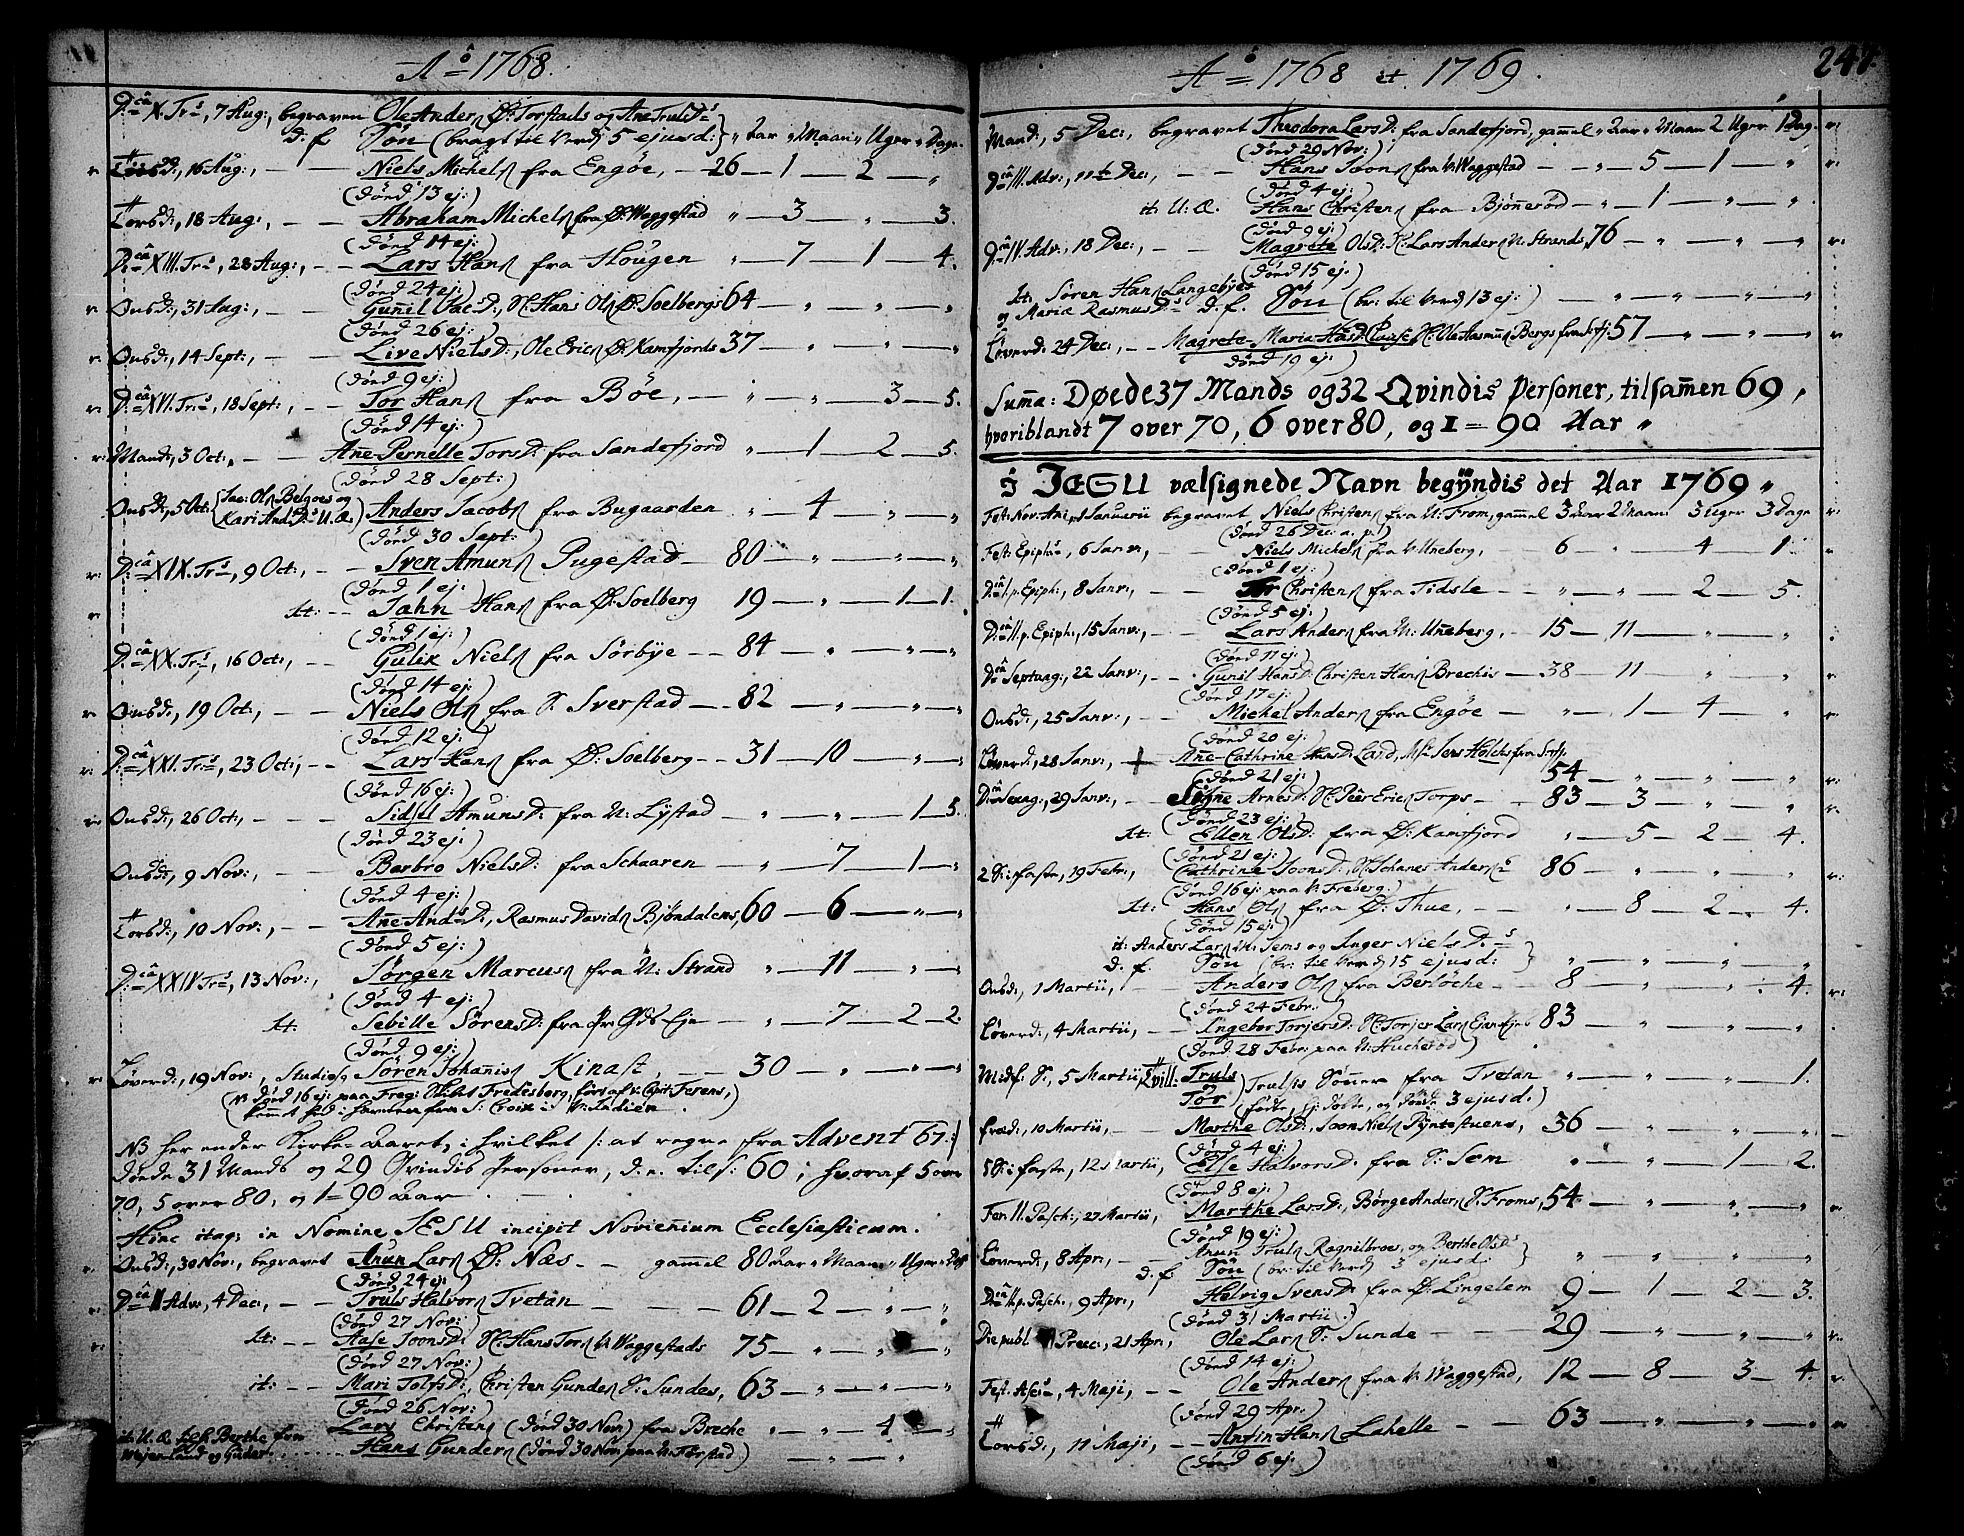 Aº 1768.
D:câ X. Tr:s, 7 Aug:, begraven Ole Anders. Ø: Torstads og Ane Truls D:s
d. f. Søn (bragt til Verd: 5 ejusd:) " Aar " Maan " Uger " Dage.
Torsd:, 16 Aug:, — Niels Michels. fra Engøe, — 26 — 1 — 2 — "
(dönd 13 ej:)
Torsd:, 18 Aug:, — Abraham Michels. fra Ø: Waggestad " — 3 — " — 3.
(dönd 14 ej:)
D:câ XIII. Tr:s, 28 Aug:, — Lars Hans. fra Hougen " — 7 — 1 — 4.
(dönd 24 ej:)
Onsd:, 31 Aug:, — Gunnil Jac D:, Hans Ols. Ø: Soelbergs 64 — " — " — "
(dönd 26 ej:)
Onsd:, 14 Sept:, — Live Niels D:, Ole Erics. Ø: Kamfjords 37 — " — " — "
(dönd 9 ej:)
D:câ XVI. Tr:s, 18 Sept:, — Tor Hans. fra Böe, — " — " — 3 — 5.
(dönd 14 ej:)
Mand:, 3 Oct:, — Ane Pernelle Tors D: fra Sandefjord " — 1 — 2 — 5.
(dönd 28 Sept:)
Onsd:, 5 Oct: (Jac: Ols. Belgoes og
Kari And: D:s U. Æ.) Anders Jacobs. fra Bugaarden " — 4 — " — "
(dönd 30 Sept:)
D:câ XIX. Tr:s, 9 Oct:, — Sven Amuns. Pugestad — 80 — " — " — "
(dönd 1 ej:)
It: — Jahn Hans. fra Ø: Soelberg 19 — " — 1 — 1.
(dönd 1 ej:)
D:câ XX. Tr:s, 16 Oct:, — Gulik Niels. fra Sörbye — 84 — " — " — "
(dönd 14 ej:)
Onsd:, 19 Oct:, — Niels Ols. fra S. Sverstad — 82 — " — " — "
(dönd 12 ej:)
D:câ XXI. Tr:s, 23 Oct:, — Lars Hans. fra Ø: Soelberg — 31 — 10 — " — "
(dönd 16 ej:)
Onsd:, 26 Oct:, — Sidsel Amuns D: fra N: Lystad — " — " — 1 — 5.
(dönd 23 ej:)
Onsd:, 9 Nov:, — Barbro Niels D: fra Schaaren — " — 7 — 1 — "
(dönd 4 ej:)
Torsd:, 10 Nov:, — Ane And:s D:, Rasmus Davids. Bjöndalens, 60 — 6 — " — "
(dönd 5 ej:)
D:câ XXIV Tr:s, 13 Nov:, Jörgen Marcus. fra N: Strand " — 11 — " — "
(dönd 4 ej:)
It: Sebille Sörens D: fra Pr: Gds Eje — " — 7 — 2 — 2.
(dönd 9 ej:)
Löverd:, 19 Nov:, Studios. Sören Johannis. Kinast, — 30 — " — " — "
(N: dönd 16 ej: paa Freg: Skibet Fredesborg, fört af v: Capit: Ferens,
komt ind i Havnen fra S: Croix i V: Indien.
NB her ender Kirke-Aaret, i hvilket /: at regne fra Advent 67:/
döede 31 Mands og 29 Qvindis Personer, d. e. tils: 60; hvoraf 5 over
70, 5 over 80, og 1 = 90 Aar.
Hinc itaq; in Nomine JESU incipit Noviennium Ecclesiasticum.
Onsd:, 30 Nov:, begravet Anun Lars. Ø: Næs — gammel 80 Aar " Maan " Uger " Dag
(dönd 24 ej:)
D:câ II Adv:, 4 Dec:, — Truls Halvors. Tvetan — 61 — 2 — " — "
(dönd 27 Nov:)
It: — Aase Joons D: Hans Tors. V: Waggestads 75 — " — " — "
(dönd 27 Nov:)
it: — Mari Tolfs D:, Christen Gundes. S: Sundes, 63 — " — " — "
(dönd 26 Nov:)
Lars Christens. (dönd 30 Nov:) fra Breche " — " — 4 — "
it: U. Æ. Berthe
Hans Gunders. (dönd 30 Nov: paa N: Torstad) — " — "
Aº 1768 et 1769.
247.
Mand:, 5 Dec:, begravet Theodora Lars D: fra Sandefjord, gammel " Aar " Maan 2 Uger 1 Dag.
(dönd 29 Nov:)
D:câ III. Adv:, 11te Dec:, — Hans Joons. fra V: Waggestad — " — 5 — 1 — "
(dönd 4 ej:)
it: U: Æ. Hans Christens. fra Bjönnesöd — " — 1 — " — "
(dönd 9 ej:)
D:câ IV. Adv:, 18 Dec:, — Magrete Ols D: Lars Anders. N: Strands, 76 — " — " — "
(dönd 15 ej:)
It: Sören Hans. Langebyes
og Maria Rasmus D:s d. f. Søn (br: til Verd: 13 ej:) — " — " — " — "
Löverd: 24 Dec:, — Magrete Maria Hans D: Clause, Ole Rasmus. Bergs fra Sefj: 57 — " — " — "
(dönd 19 ej:)
Summa: Døede 37 Mands og 32 Qvindis Personer, tilsamen 69,
hvoriblandt 7 over 70, 6 over 80, og 1 = 90 Aar "
i JESU velsignede Navn begyndis det Aar 1769 "
Fest: Nov: Ani, 1 Januarii begravet Niels Christens. fra N: From, gammel 3 Aar 2 Maan 3 Uger 3 Dage
(dönd 26 Dec: a. p:)
Fest: Epiph:, 6 Janv:, — Niels Michels. fra V: Unneberg, — 6 — " — 4 — 1.
(dönd 1 ej:)
D:câ I. p. Epiph:, 8 Janv:, — Tor Christens. fra Tidsle — " — " — 2 — 5.
(dönd 5 ej:)
D:câ II. p. Epiph:, 15 Janv:, — Lars Anders. fra N: Unneberg, — 15 — 11 — " — "
(dönd 11 ej:)
D:câ Septuag:, 22 Janv:, — Gunil Hans D: Christen Hans. Brechis — 38 — 11 — " — "
(dönd 17 ej:)
Onsd:, 25 Janv:, — Michel Anders. fra Engöe — " — 1 — 4 — "
(dönd 20 ej:)
Löverd:, 28 Janv:, + Ane Cathrine Hans D: Land, Jens Holchs fra Sefj:
(dönd 21 ej:) 54 — " — " — "
D:câ Sexag:, 29 Janv:, — Signe Arnes D: Peer Erics. Torps — 83 — 3 — " — "
(dönd 23 ej:)
It: Ellen Ols D: fra Ø: Kamfjord " — 5 — 2 — 4.
(dönd 21 ej:)
2 S: i Faste, 19 Febr:, Cathrine Joons D: Johanes Anders.s 86 — " — " — "
(dönd 16 ej: paa V: Freberg:)
It: Hans Ols. fra Ø: Thue, — " — 8 — 2 — 4.
(dönd 15 ej:)
it: Anders Lars. N: Sems og Inger Niels D:s
d. f. Søn (br: til Verd: 15 ejusd:) " — " — " — "
Onsd:, 1 Martii, — Anders Ols. fra Berlöche — 8 — " — " — 4.
(dönd 24 Febr:)
Löverd:, 4 Martii, — Ingebor Torjers D: Torjer Lars. 83 — " — " — "
(dönd 28 Febr: paa N: Huchesöd)
Midf: S:, 5 Martii, Tvill: Truls
og
Tor) Truls's Sönner fra Tvetan " — " — " — 1.
(födte, hj: döbte, og döde 3 ejusd.)
Fred:, 10 Martii, — Marthe Ols D:, Joon Niels. Pyntestuens, 36 — " — " — "
(dönd 4 ej:)
5 S: i Faste, 12 Martii, Else Halvors D: fra S: Sem " — " — 1 — 2.
(dönd 8 ej:)
Fer: II. Pasch:, 27 Martii, Marthe Lars D:, Börge Anders. S: Froms, 54 — " — " — "
(dönd 19 ej:)
Löverd:, 8 Apr:, — Anun Truls. Ragnilbroes, og Berthe Ols D:s
d. f. Søn (br: til Verd: 3 ejusd:) " — " — " — "
D:câ II p. Pasch:, 9 Apr:, Helvig Svens D: fra Ø: Lingelem 9 — 1 — 2 — 3.
(dönd 31 Martii:)
Die publ: Prec:, 21 Apr:, Ole Lars. S: Sunde — 29 — " — " — "
(dönd 14 ej:)
Fest. Asc:s, 4 Maji, — Ole Anders. fra V: Waggestad, 12 — 8 — 3 — 4.
(dönd 29 Apr:)
Torsd:, 11 Maji, — Antin Hans. Lahelle — 63 — " — " — "
(dönd 6 ej:)